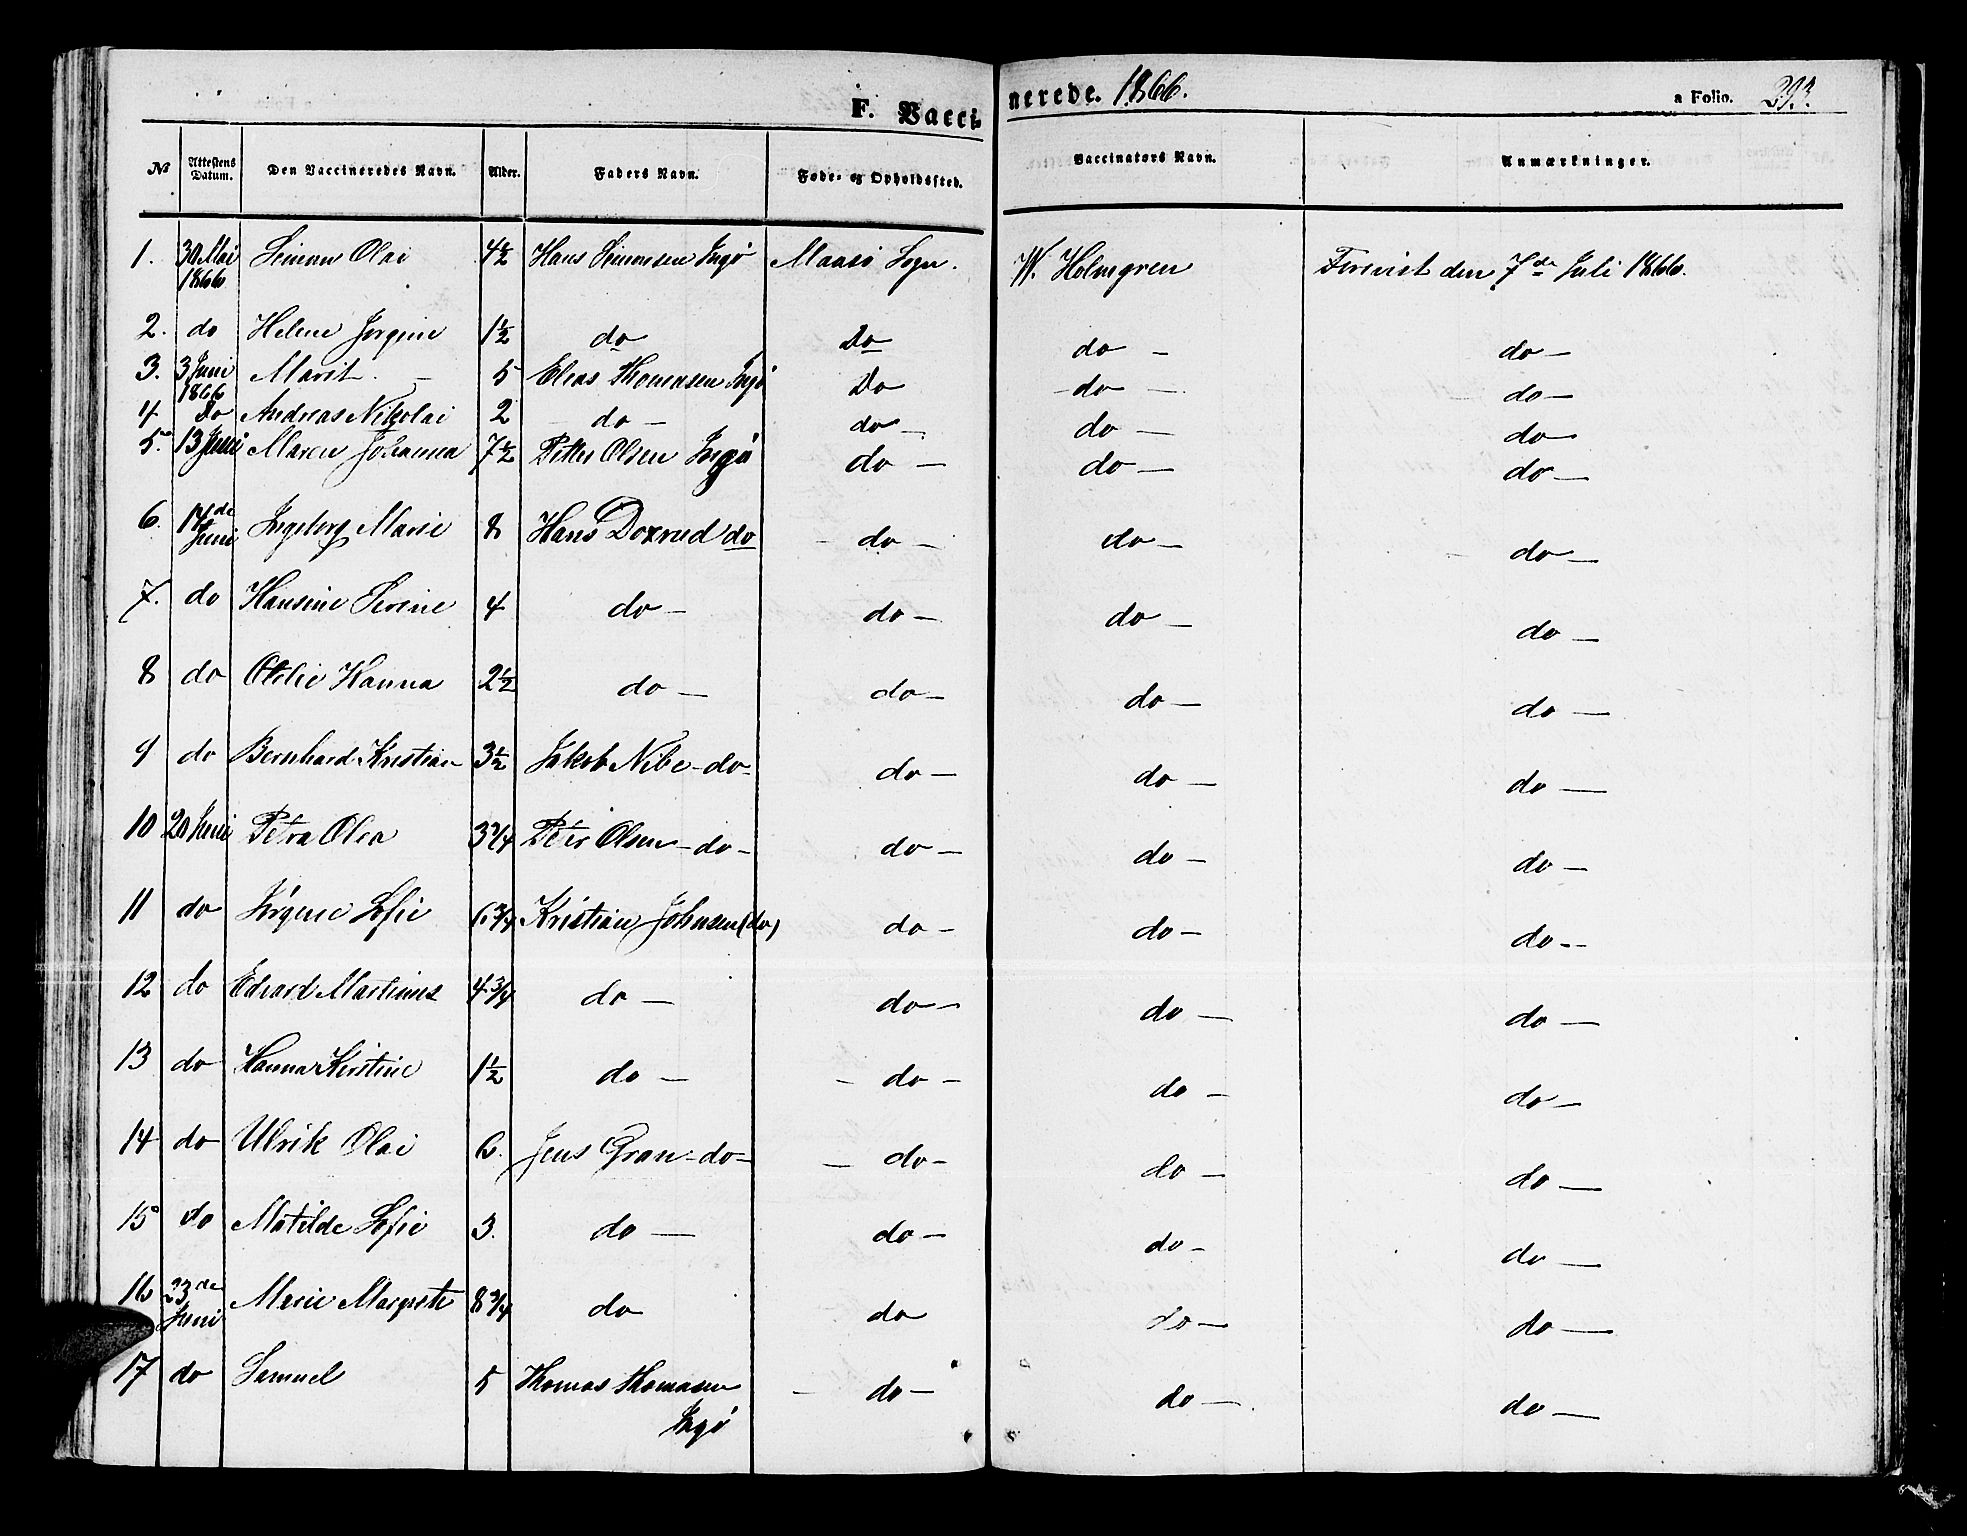 F. Vaccinerede. 1866.
a Folio. 393.
No Attestens Datum. Den Vaccineredes Navn. Alder. Faders Navn. Føde- og Opholdssted. Vaccinators Navn. Anmærkninger.
1. 30 Mai 1866 Simon Olai 4½ Hans Simonsen Ingø Maasø Sogn. W. Holmgren Forevist den 7de Juli 1866.
2. do Helene Jørgine 1½ do Do do - do -
3. 3 Juni 1866 Marit. - 5 Elias Thomasen Ingø Do - do - - do -
4 Do Andreas Nikolai 2 - do - do - do - do
5. 13 Juni Maren Johanna 7½ Petter Olsen Ingø do - do - do -
6. 17de Juni Ingeborg Marie 8 Hans Doxrud do - do - do - - do -
7. do Hansine Serine 4 do - do - do - do -
8 do Otelie Hanna 2½ do - do - do - do -
9 do Bernhard Kristian 3½ Jakob Nibe - do - do - do - do -
10 20 Juni Petra Olea 3¾ Peter Olsen - do - do - do - do -
11 do Jørgine Sofie 6¾ Kristian Johnsen (do) do - do - do -
12 do Edvard Martinus 4¾ do - do - do - do -
13 do Hanna Kirstine 1½ do - - do - do - do -
14 do Ulrik Olai 6. Jens Gran - do - - do - do - do -
15 do Matilde Sofie 3. do - do - do - do -
16 23de Juni Marie Margrete 8¾ do do do - do -
17 do Samuel 5 Thomas Thomasen - do - do - do -
Ingø